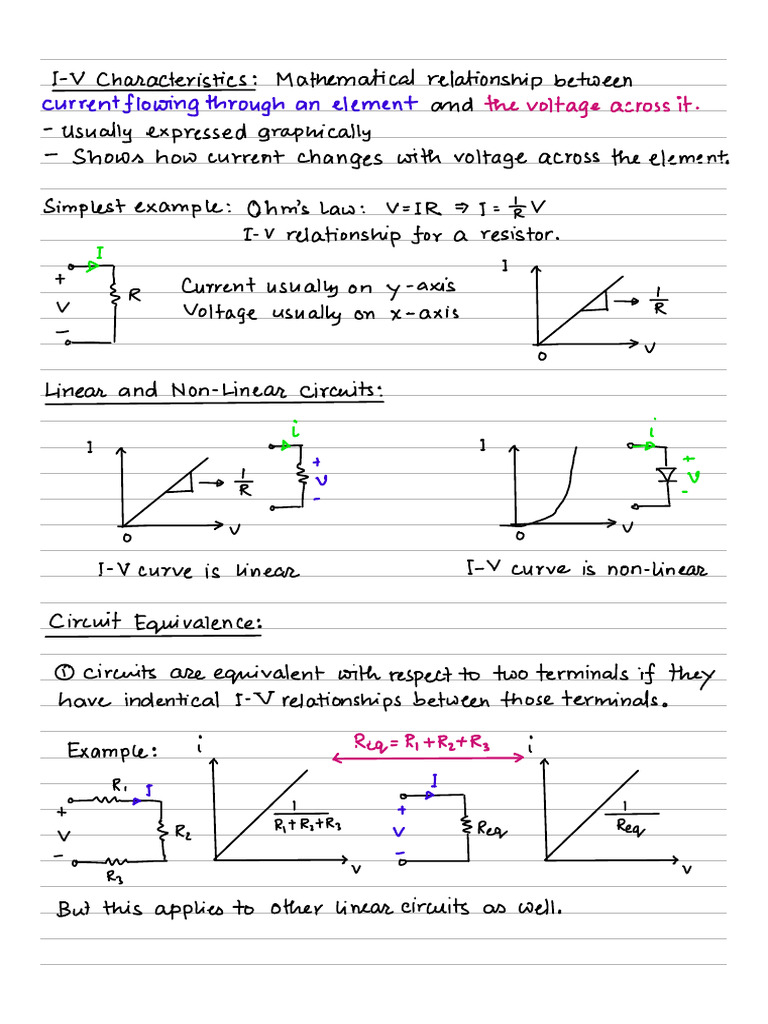 I-V Characteristics: Mathematical relationship between
current flowing through an element and the voltage across it.
- Usually expressed graphically
- Shows how current changes with voltage across the element.
Simplest example: Ohm's Law: V=IR ⇒ I = 1/R V
I-V relationship for a resistor.
I
+
V
-
R
Current usually on y-axis
Voltage usually on x-axis
I
1/R
0
V
Linear and Non-Linear Circuits:
I
1/R
0
V
i
+
V
-
I
0
V
i
+
V
-
I-V curve is linear
I-V curve is non-linear
Circuit Equivalence:
① circuits are equivalent with respect to two terminals if they
have indentical I-V relationships between those terminals.
Example:
R1
I
+
V
-
R2
R3
i
1/R1+R2+R3
V
Req = R1+R2+R3
I
+
V
-
Req
i
1/Req
V
But this applies to other linear circuits as well.